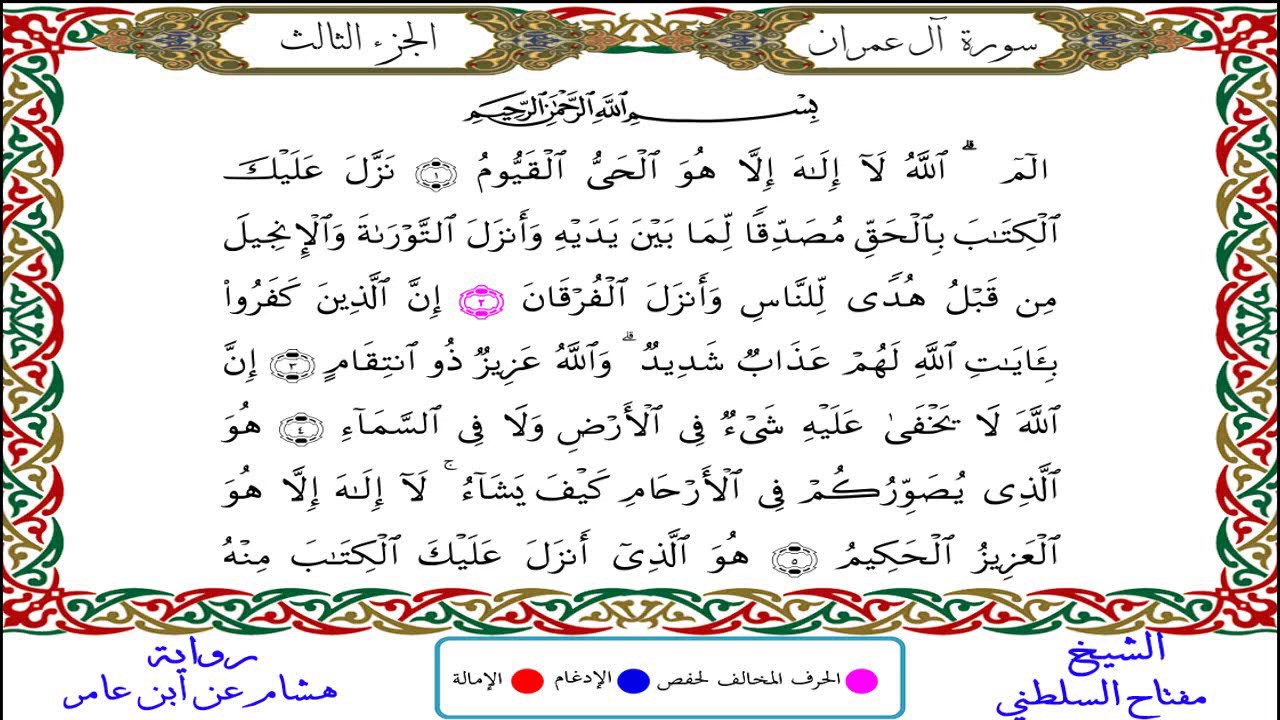 سورة آل عمران
الجزء الثالث
بِسْمِ اللَّهِ الرَّحْمَٰنِ الرَّحِيمِ
الٓمٓ ۗ ٱللَّهُ لَآ إِلَٰهَ إِلَّا هُوَ ٱلْحَىُّ ٱلْقَيُّومُ ١ نَزَّلَ عَلَيْكَ
ٱلْكِتَٰبَ بِٱلْحَقِّ مُصَدِّقًا لِّمَا بَيْنَ يَدَيْهِ وَأَنزَلَ ٱلتَّوْرَىٰةَ وَٱلْإِنجِيلَ
مِن قَبْلُ هُدًى لِّلنَّاسِ وَأَنزَلَ ٱلْفُرْقَانَ ٢ إِنَّ ٱلَّذِينَ كَفَرُوا۟
بِـَٔايَٰتِ ٱللَّهِ لَهُمْ عَذَابٌ شَدِيدٌ ۗ وَٱللَّهُ عَزِيزٌ ذُو ٱنتِقَامٍ ٣ إِنَّ
ٱللَّهَ لَا يَخْفَىٰ عَلَيْهِ شَىْءٌ فِى ٱلْأَرْضِ وَلَا فِى ٱلسَّمَآءِ ٤ هُوَ
ٱلَّذِى يُصَوِّرُكُمْ فِى ٱلْأَرْحَامِ كَيْفَ يَشَآءُ ۚ لَآ إِلَٰهَ إِلَّا هُوَ
ٱلْعَزِيزُ ٱلْحَكِيمُ ٥ هُوَ ٱلَّذِىٓ أَنزَلَ عَلَيْكَ ٱلْكِتَٰبَ مِنْهُ
الشيخ
مفتاح السلطني
الحرف المخالف لحفص
الإدغام
الإمالة
رواية
هشام عن ابن عامر